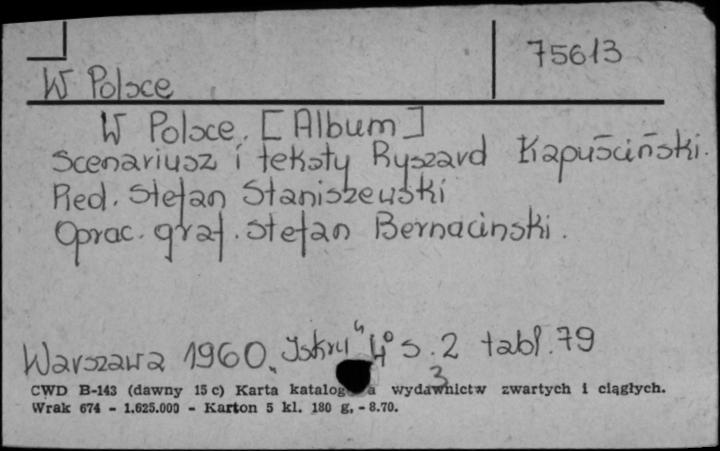 75613
W Polsce
W Polsce. [Album]
Scenariusz i teksty Ryszard Kapuściński.
Red. Stefan Staniszewski
Oprac. graf. Stefan Bernaciński.
Warszawa 1960 „Iskry" 4° s. 2 tabl. 79
3
CWD B-143 (dawny 15 c) Karta katalog a wydawnictw zwartych i ciągłych.
Wrak 674 - 1.625.000 - Karton 5 kl. 180 g. - 8.70.